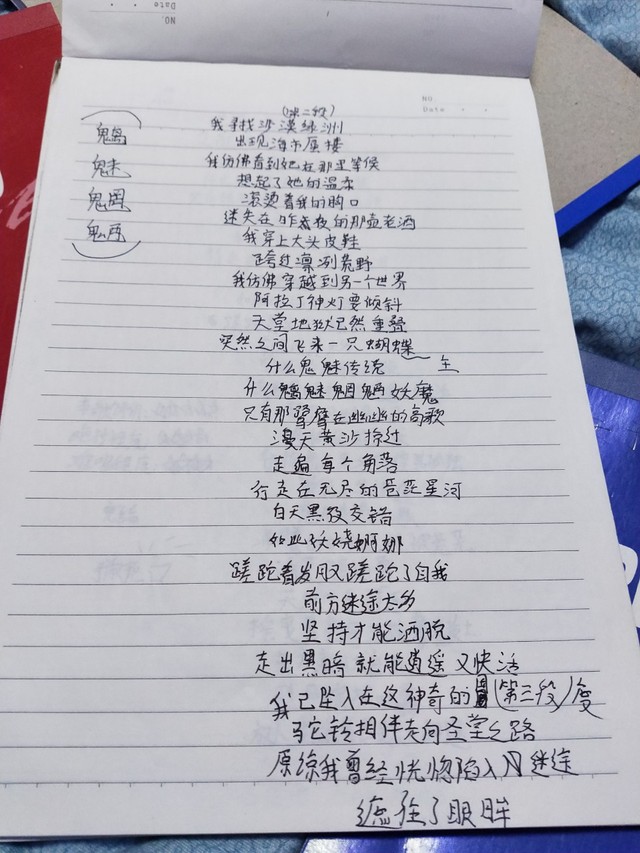 NO.
Date
NO.
Date
(第二段)
我寻找沙漠绿洲
出现海市蜃楼
我仿佛看到她在那里等候
想起了她的温柔
滚烫着我的胸口
迷失在昨夜的那壶老酒
我穿上大头皮鞋
跨过凛冽荒野
我仿佛穿越到另一个世界
阿拉丁神灯要倾斜
天堂地狱已然重叠
突然之间飞来一只蝴蝶
什么鬼魅传统 生
什么魑魅魍魉妖魔
只有那鹭鹰在幽幽的高歌
漫天黄沙掠过
走遍每个角落
行走在无尽的苍茫星河
白天黑夜交错
如此妖娆婀娜
蹉跎着岁月又蹉跎了自我
前方迷途太多
坚持才能洒脱
走出黑暗就能逍遥又快活
我已坠入在这神奇的国(第三段)度
驼铃相伴走向圣堂之路
原谅我曾经恍惚陷入 迷途
遮住了眼眸
魑
魅
魍
魉